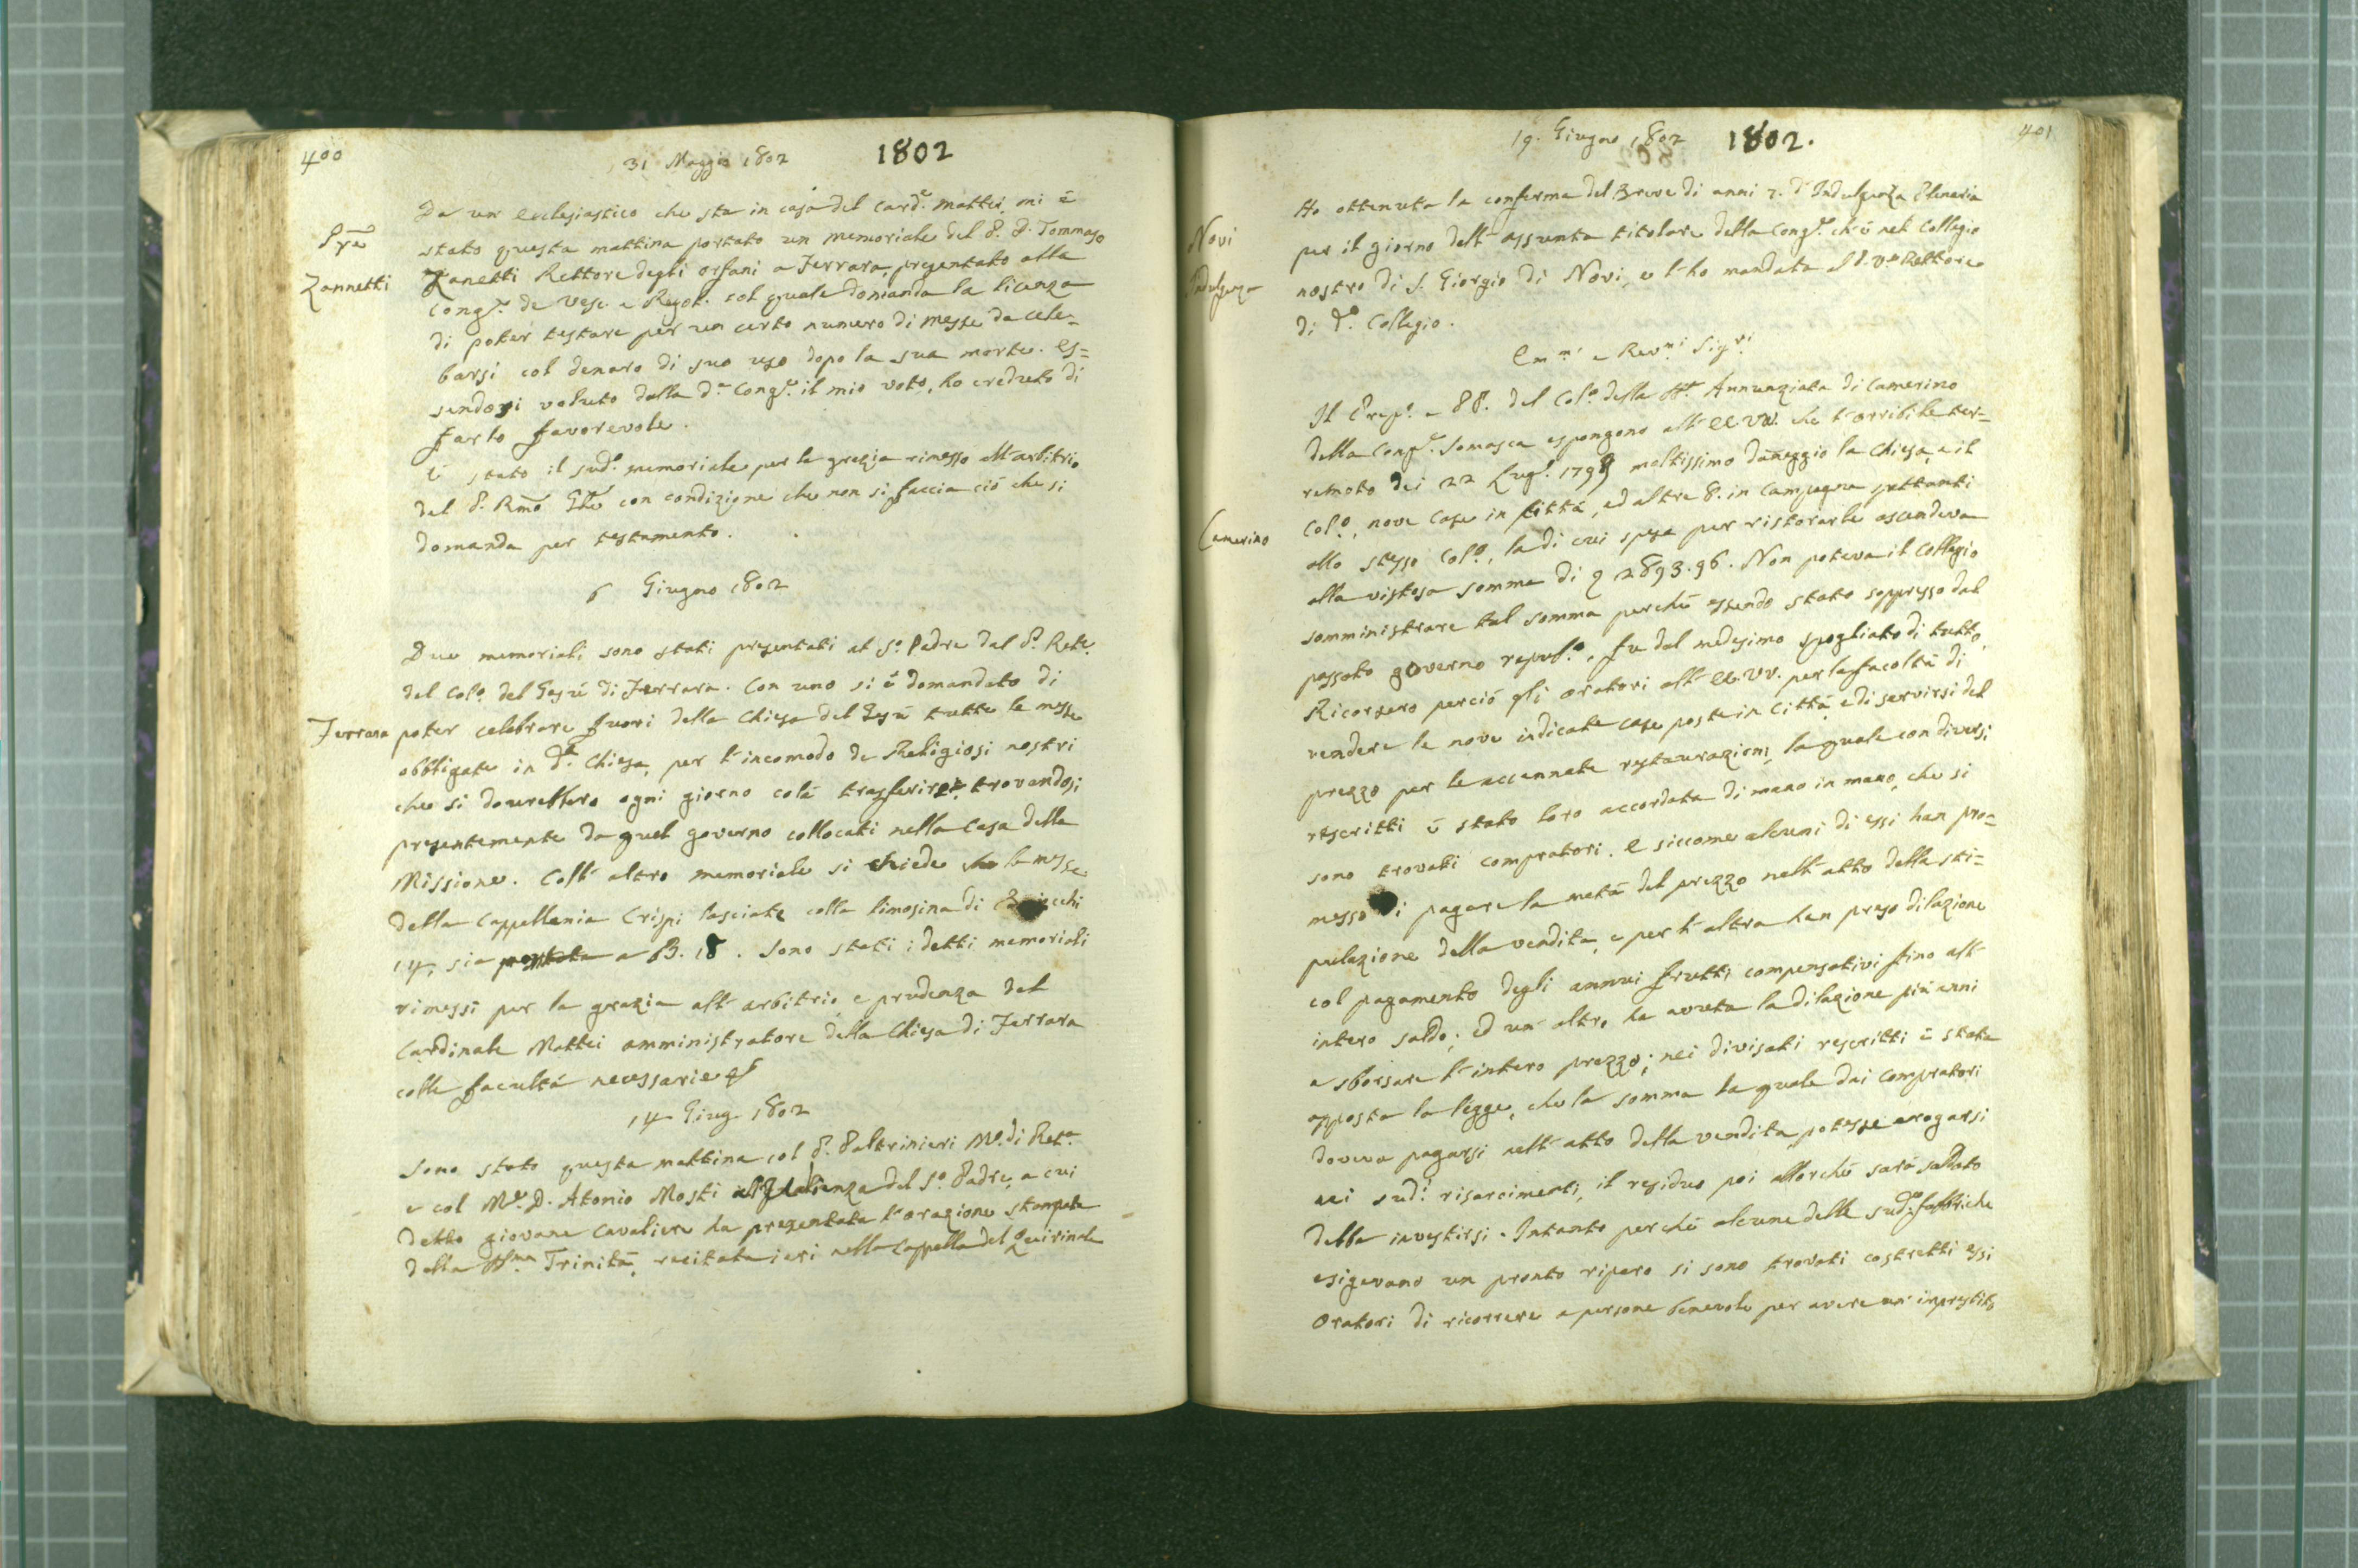 400
31 Maggio 1802 1802
Da un Ecclesiastico che sta in casa del Card.e Mattei, mi è
stato questa mattina portato un memoriale del P. D. Tommaso
Zannetti
Zanetti Rettore degli orfani a Ferrara, presentato alla
Cong.e de Vesc. e Regol. col quale domanda la licenza
di poter testare per un certo numero di messe da cele=
barsi col denaro di suo uso dopo la sua morte. Es=
sendosi voluto dalla d.a Cong.e il mio voto, ho creduto di
farlo favorevole.
È stato il sud.o memoriale per la grazia rimesso all'arbitrio
del P. Rmo Gñle con condizione che non si faccia ciò che si
domanda per testamento.
6 Giugno 1802
Due memoriali sono stati presentati al S.o Padre dal P. Rett.e
del Col.o del Gesù di Ferrara. Con uno si è domandato di
Ferrara
poter celebrare fuori della Chiesa del Gesù tutte le messe
obbligate in d.a Chiesa, per l'incomodo de Religiosi nostri
che si dovrebbero ogni giorno colà trasferire, trovandosi
presentemente da quel governo collocati nella Casa della
Missione. Coll'altro memoriale si chiede che le messe
della Cappellania Crispi lasciate colla limosina di
14, sia portata a B. 18. Sono stati i detti memoriali
rimessi per la grazia all'arbitrio e prudenza del
Cardinale Mattei amministratore della Chiesa di Ferrara
colle facultà necessarie
14 Giug. 1802
Sono stato questa mattina col P. Paltrinieri M.o di Ret.a
e col M.e D. Atonio Mosti all'Udienza del S.o Padre, a cui
detto giovane Cavaliere ha presentata l'orazione stampata
della SSma Trinità, recitata ieri nella Cappella del Quirinale
401
19. Giugno 1802 1802.
Novi
Indulgenza
Ho ottenuta la conferma del Breve di anni 7. d'Indulgenza Plenaria
per il giorno dell'Assunta titolare della Cong.e ch'è nel Collegio
nostro di S. Giorgio di Novi, e l'ho mandata al P. V.e Rettore
di d.o Collegio.
Em.mi e Rev.mi Sig.ri
Il Prep.o e PP. del Col.o della SS. Annunziata di Camerino
della Cong.e Somasca espongono all'EE.VV. che l'orribile ter=
remoto dei 22 Lug.o 1799 moltissimo daneggiò la Chiesa, e il
Camerino
Col.o, nove Case in Città, ed altre 8. in Campagna spettanti
allo stesso Col.o, la di cui spesa per ristorarle ascendeva
alla vistosa somma di 2893.96. Non poteva il Collegio
somministrare tal somma perchè essendo stato soppresso dal
passato governo repub.o, fu dal medesimo spogliato di tutto.
Ricorsero perciò gli Oratori all'EE.VV. per la facoltà di
vendere le nove indicate case poste in Città, e di servirsi del
prezzo per le accennate restaurazioni, la quale con diversi
rescritti è stato loro accordata di mano in mano, che si
sono trovati compratori. E siccome alcuni di essi han pro=
messo di pagare la metà del prezzo nell'atto della sti=
pulazione della vendita, e per l'altra han preso dilazione
col pagamento degli annui frutti compensativi fino all'
intero saldo; ed un'altro ha avuta la dilazione più anni
a sborsare l'intero prezzo; nei divisati rescritti è stata
apposta la legge, che la somma la quale dai compratori
doveva pagarsi nell'atto della vendita, potesse erogarsi
nei sud.i risarcimenti, il residuo poi allorchè sarà saldato
debba investirsi. Intanto perchè alcune delle sud.e fabbriche
esigevano un pronto riparo si sono trovati costretti essi
Oratori di ricorrere a persone benevole per avere un'imprestito